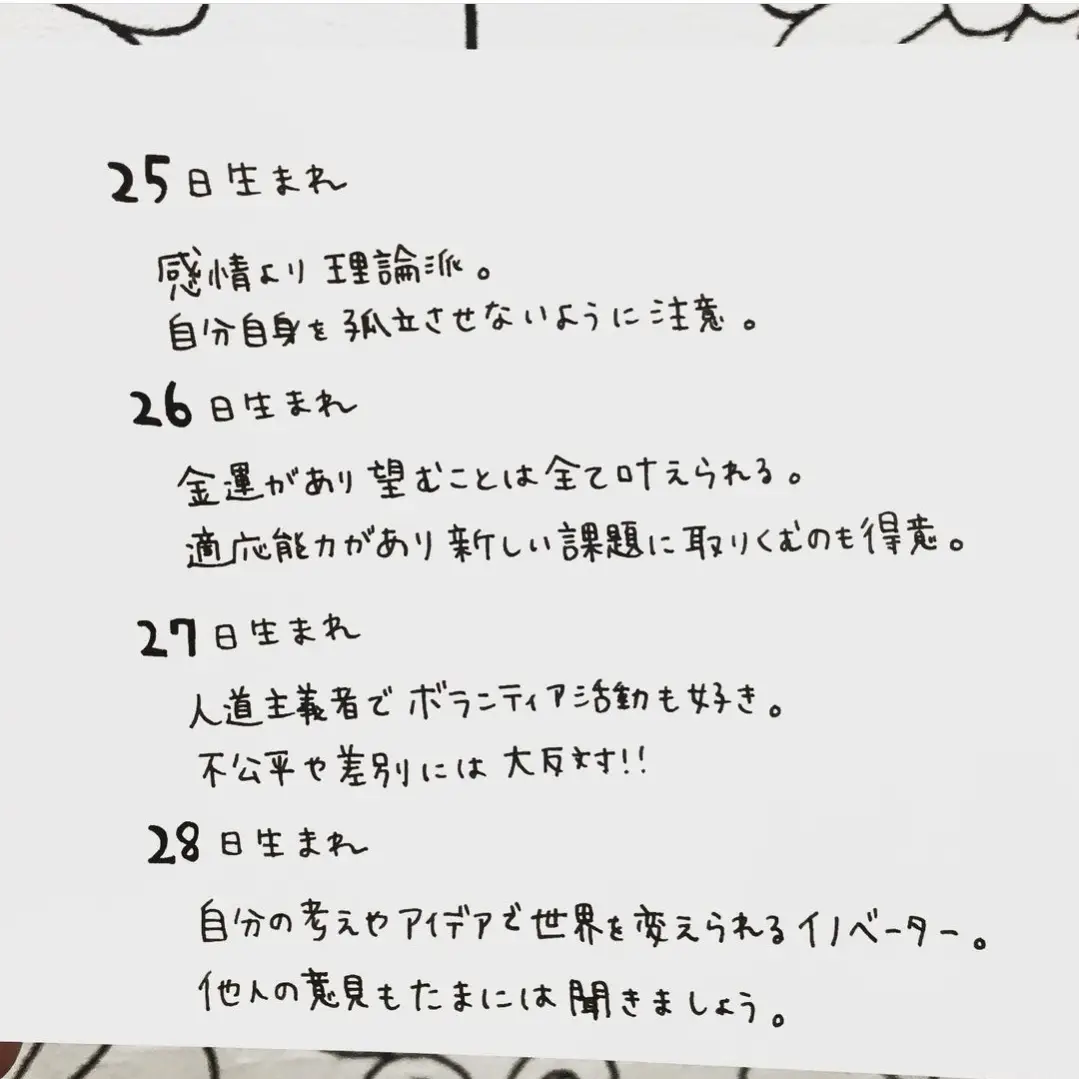 25日生まれ
感情より理論派。
自分自身を孤立させないように注意。
26日生まれ
金運があり望むことは全て叶えられる。
適応能力があり新しい課題に取りくむのも得意。
27日生まれ
人道主義者でボランティア活動も好き。
不公平や差別には大反対!!
28日生まれ
自分の考えやアイデアで世界を変えられるイノベーター。
他人の意見もたまには聞きましょう。